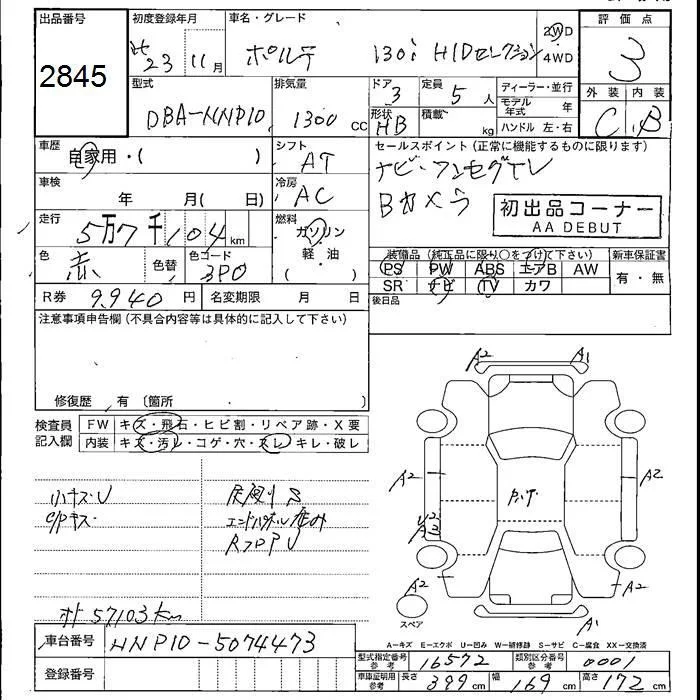 出品番号 初度登録年月 車名・グレード 評価点
2845 23年 11月 ポルテ 130i HIDセレクション 2WD 4WD 3
型式 排気量 ドア 定員 ディーラー・並行 外装 内装
DBA-NNP10 1300 CC 3 5人 モデル年式 年 C B
形状 HB 積載 kg ハンドル 左・右
車歴 自家用・( ) シフト AT セールスポイント(正常に機能するものに限ります)
車検 年 月( 日) 冷房 AC ナビ・ワンセグTV
Bカメラ 初出品コーナー
AA DEBUT
走行 5万7千104 km 燃料 ガソリン
軽・油
( )
色 赤 色替 色コード 3P0
装備品(純正品に限り○をつけて下さい) 新車保証書
PS PW ABS エアB AW 有・無
SR ナビ TV カワ
R券 9,940 円 名変期限 月 日 後日品
注意事項申告欄(不具合内容等は具体的に記入して下さい)
修復歴 有 〔箇所 〕
検査員 FW キズ・飛石・ヒビ割・リペア跡・X要
記入欄 内装 キズ・汚レ・コゲ・穴・スレ・キレ・破レ
小キズU
57103km
A2 A1
A2 A2
A2 A2
A1
スペア
車台番号 NNP10-5074473
登録番号
A-キズ E-エクボ U-凹み W-補修跡 S-サビ C-腐食 XX-交換済
型式指定番号 参考 16572 類別区分番号 参考 0001
車庫証明用 参考 長さ 399 cm 幅 169 cm 高さ 172 cm